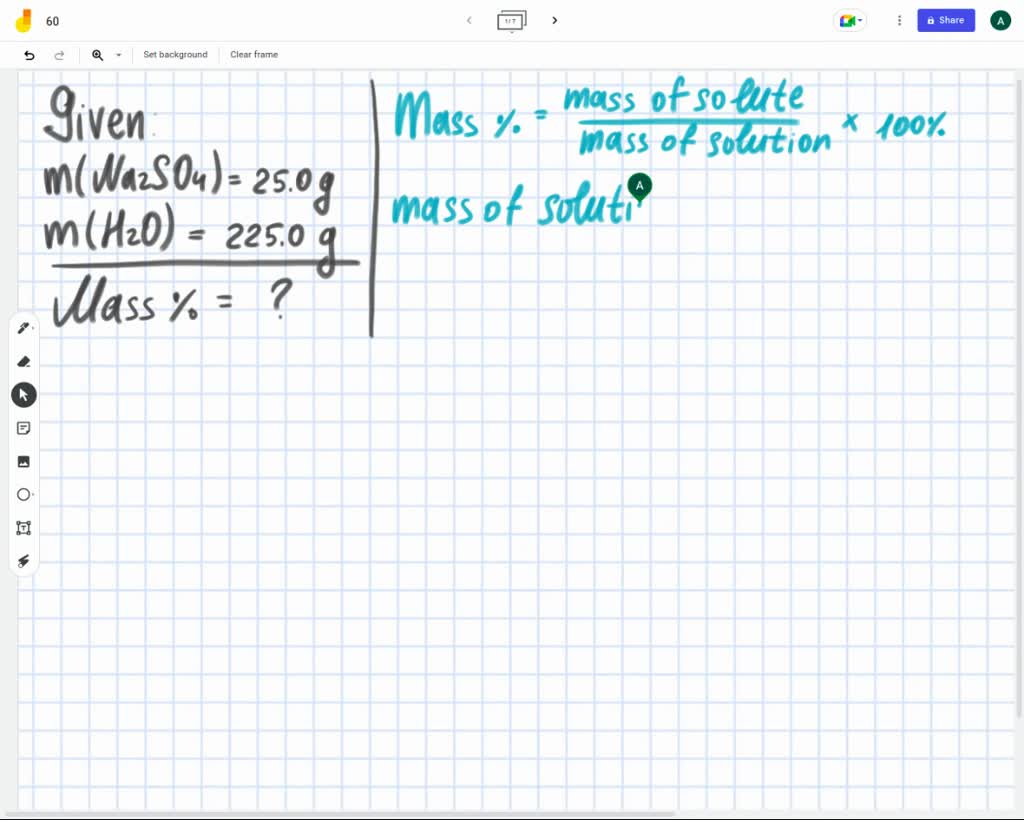 60
1/7
Share
A
Set background
Clear frame
Given:
m(Na2SO4) = 25.0 g
m(H2O) = 225.0 g
Mass % = ?
Mass % = mass of solute
mass of solution
× 100%
mass of soluti
A